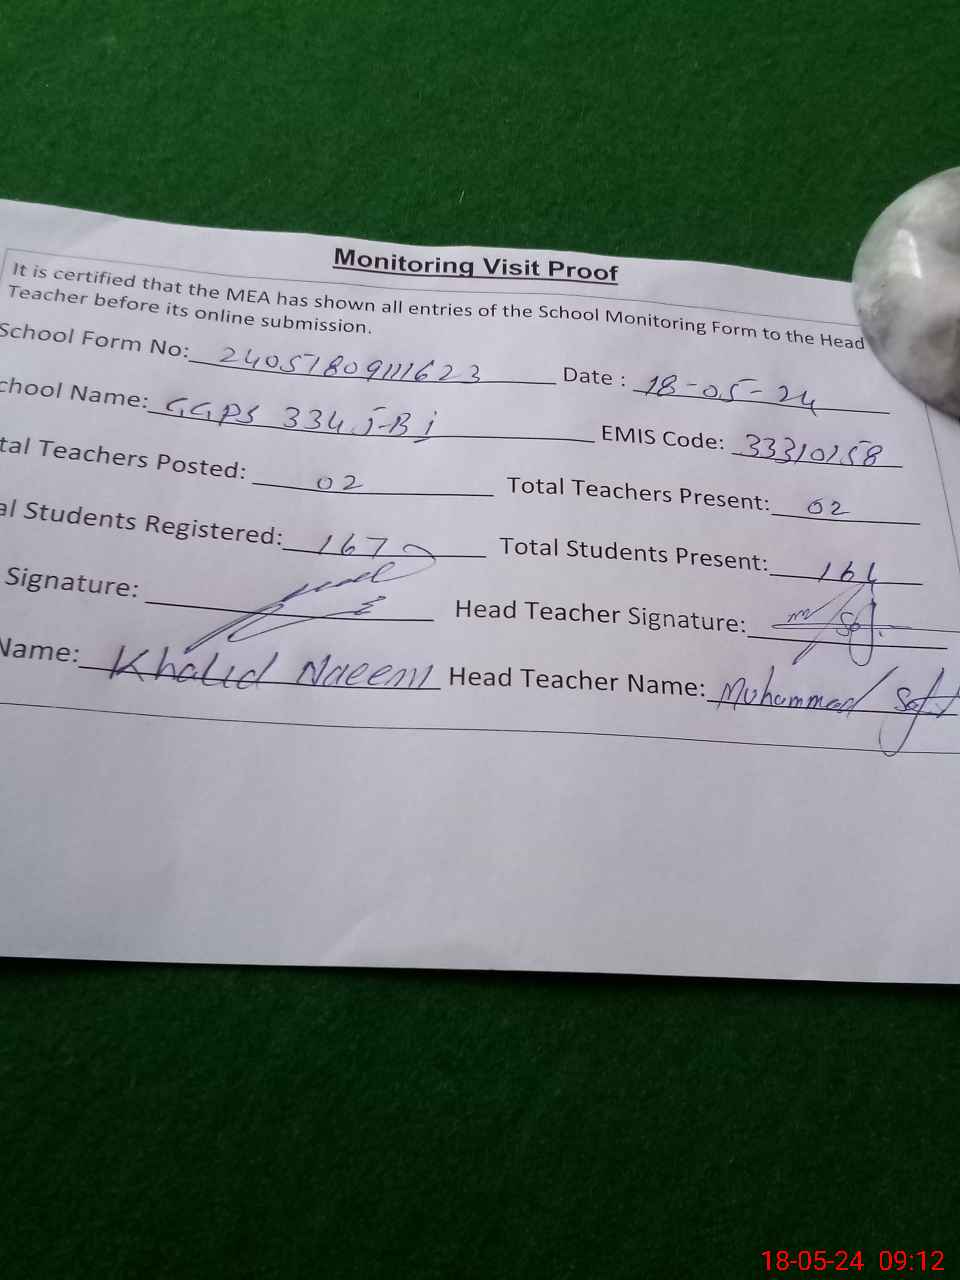 Monitoring Visit Proof
It is certified that the MEA has shown all entries of the School Monitoring Form to the Head
Teacher before its online submission.
School Form No: 24051809111623 Date : 18-05-24
chool Name: GGPS 334 J-B i EMIS Code: 33310158
tal Teachers Posted: 02 Total Teachers Present: 02
al Students Registered: 167 Total Students Present:
Signature: Head Teacher Signature:
Name: Khalid Naeem Head Teacher Name: Muhammad
18-05-24 09:12